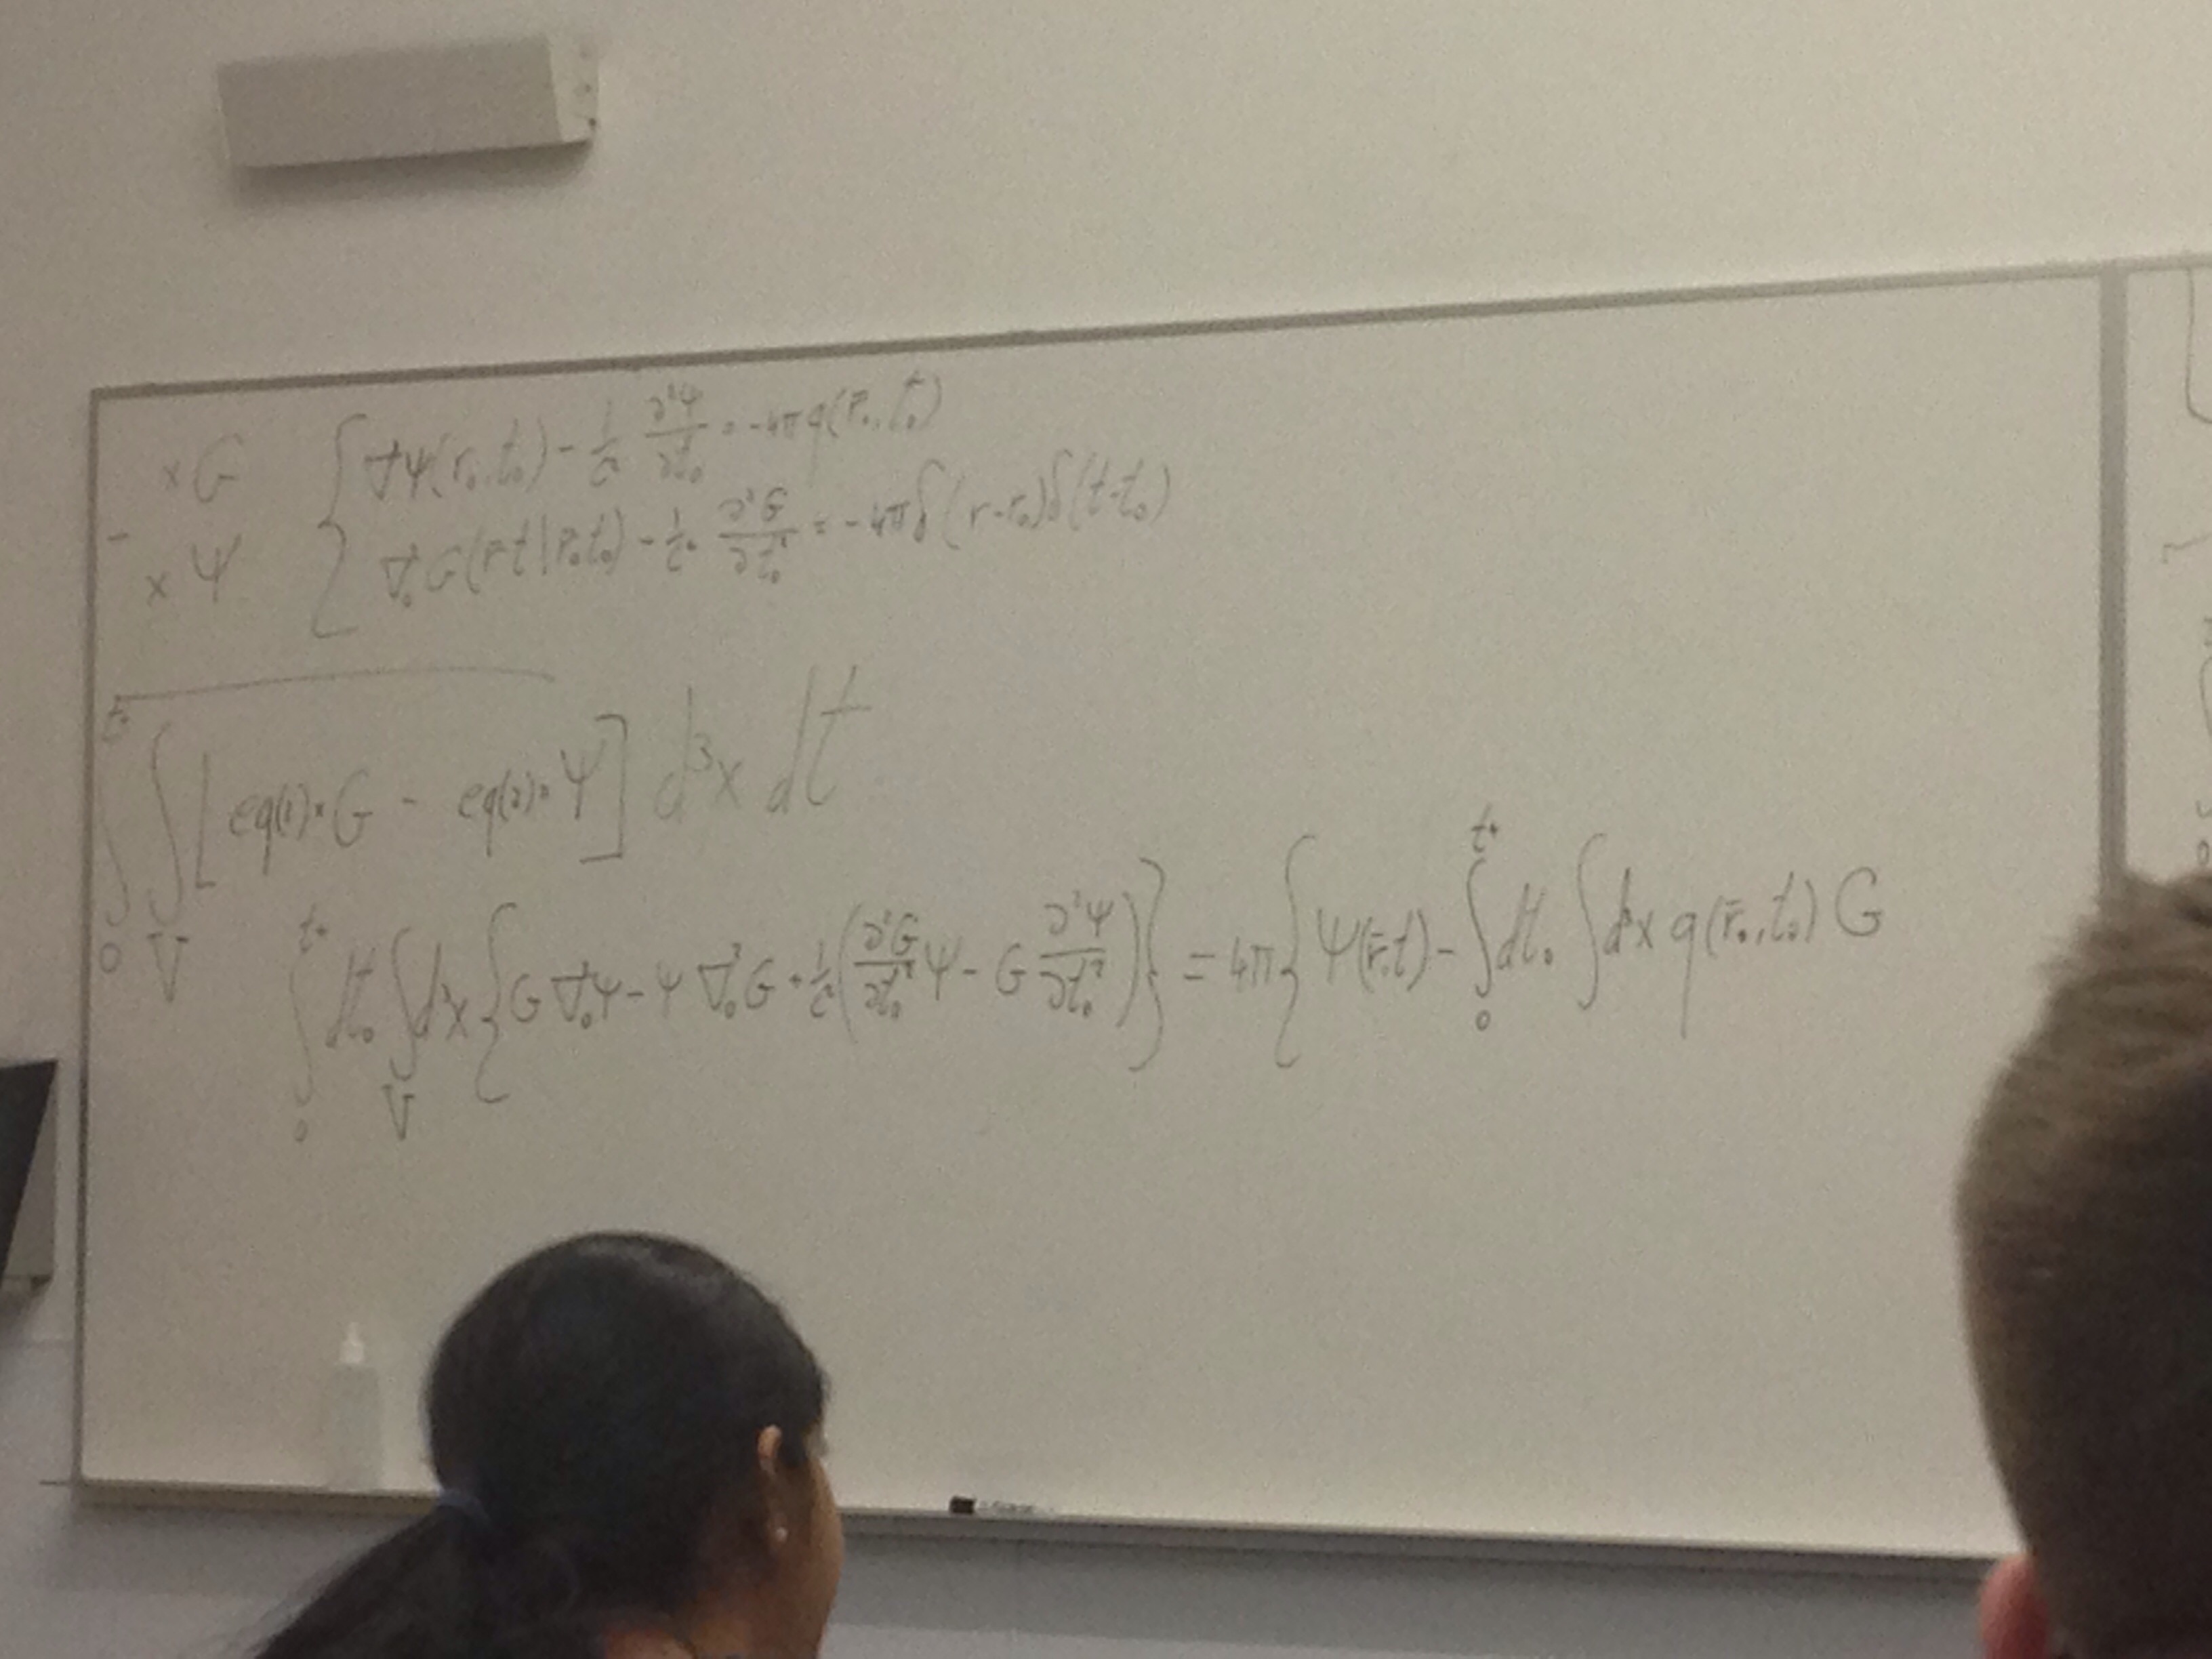 × G { ∇²ψ(r₀,t₀) - 1/c² ∂²ψ/∂t₀² = -4π q(r̄₀,t₀)
- × ψ ∇₀²G(r̄t|r̄₀t₀) - 1/c² ∂²G/∂t₀² = -4πδ(r-r₀)δ(t-t₀)
∫₀^t⁺ ∫_V [eq(1)·G - eq(2)·ψ] d³x dt
∫₀^t⁺ dt₀ ∫_V d³x { G∇₀²ψ - ψ∇₀²G + 1/c² ( ∂²G/∂t₀² ψ - G ∂²ψ/∂t₀² ) } = 4π { ψ(r̄,t) - ∫₀^t⁺ dt₀ ∫ d³x q(r̄₀,t₀) G